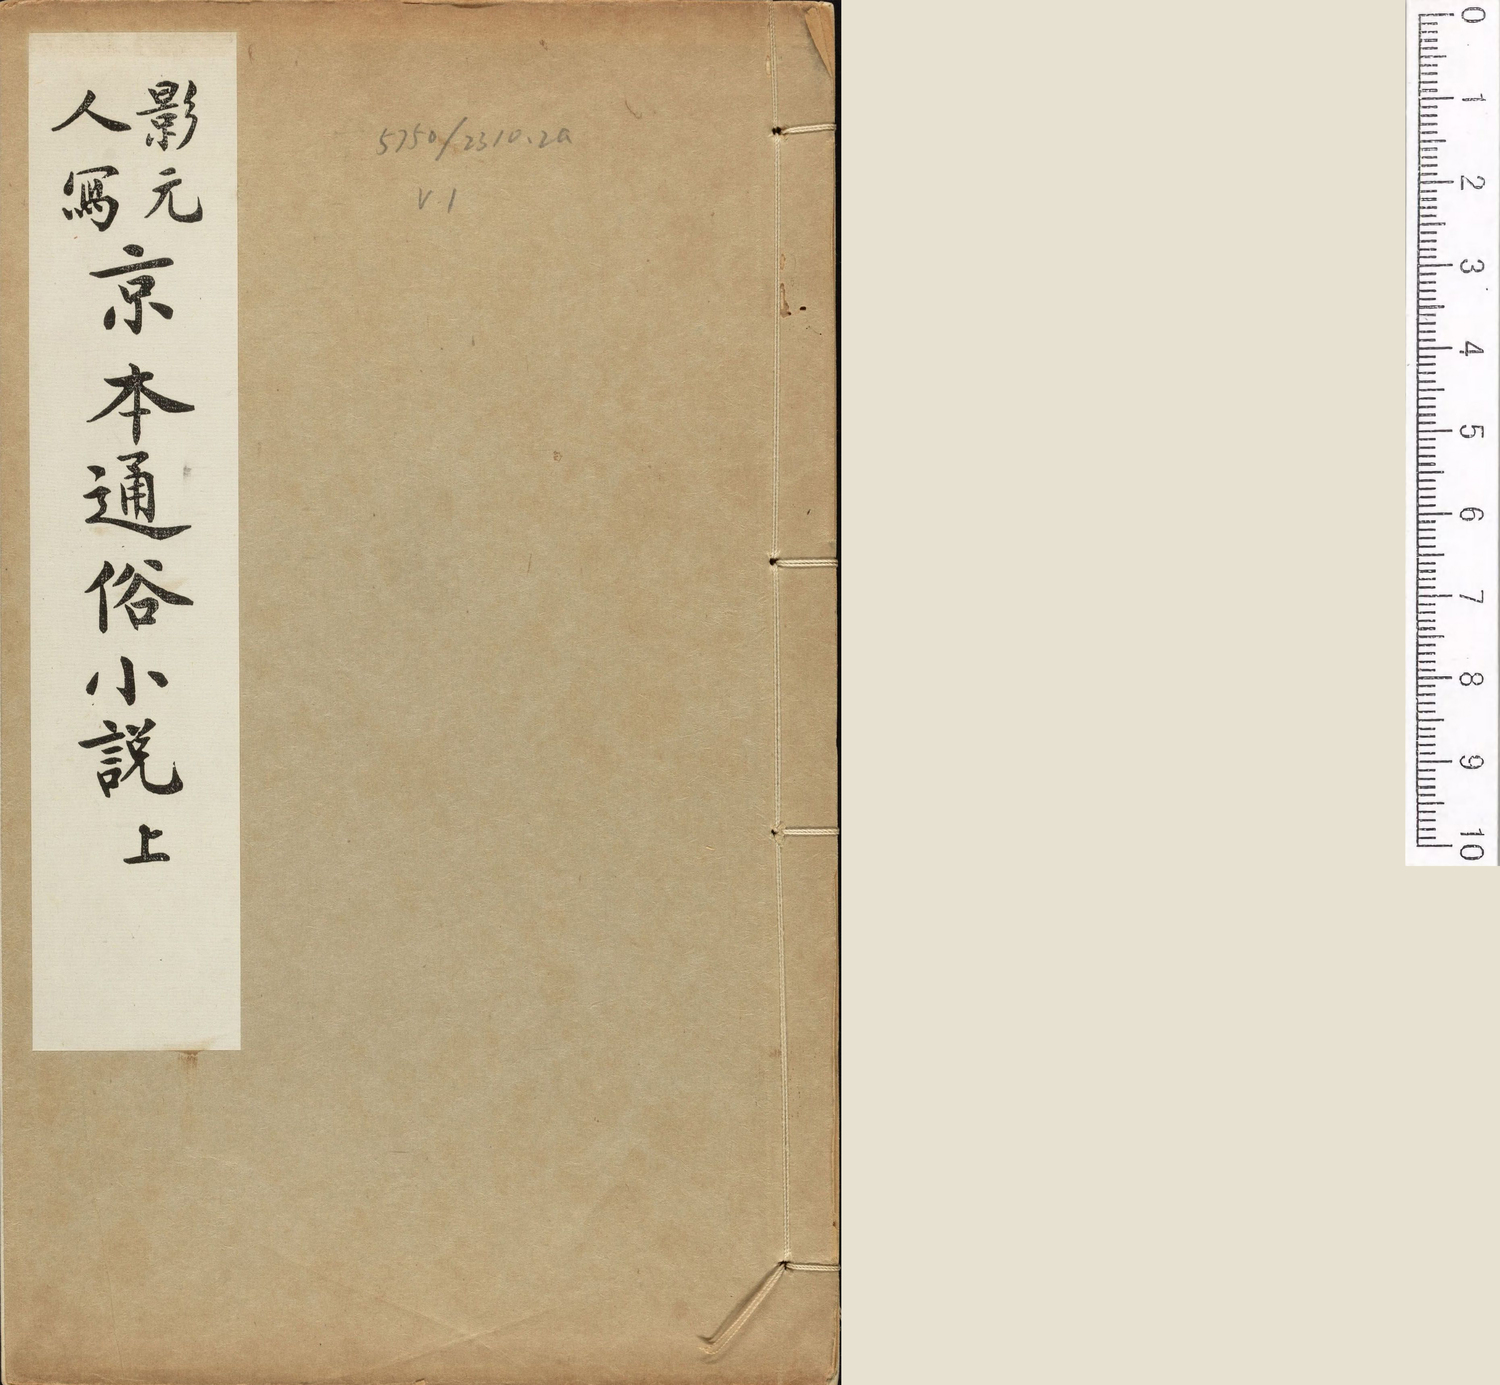 影元
人寫
京本通俗小説 上
5750/2310.2a
v 1
0 1 2 3 4 5 6 7 8 9 10